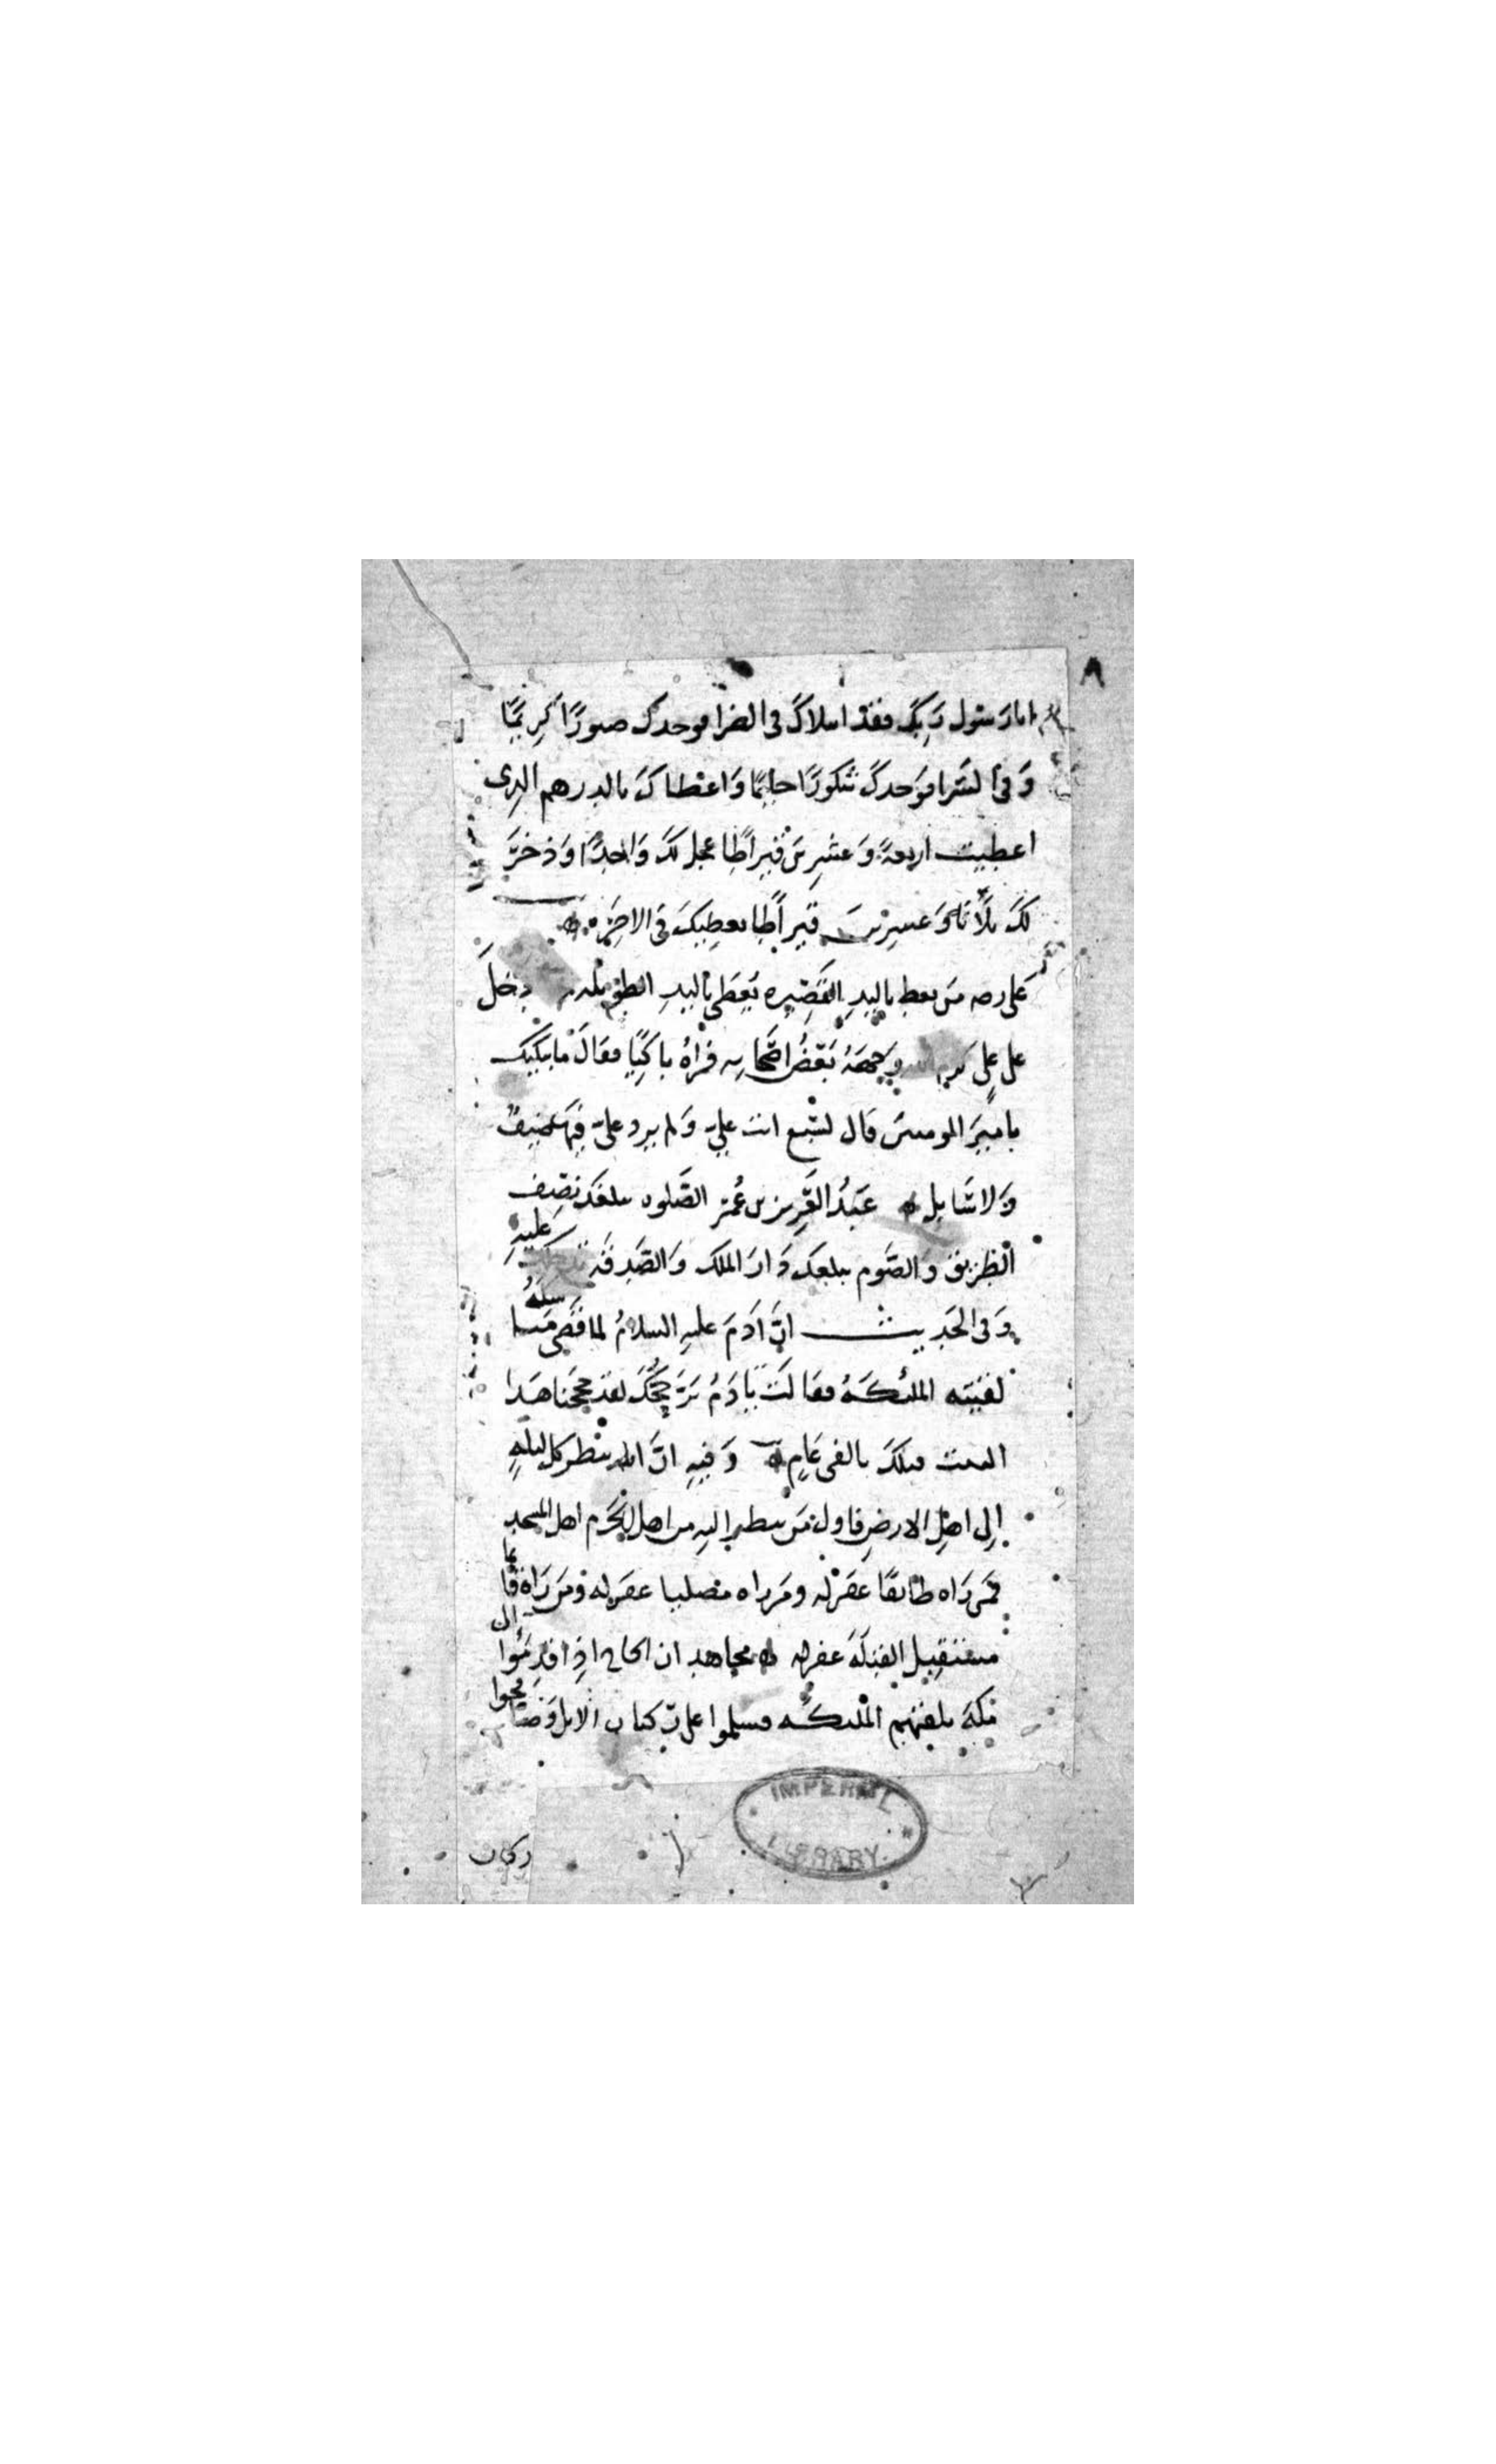 ٨
انا رسول ربك فقد ابتلاك في الضرا فوجدك صبورًا كريمًا
وَفي السَّرا فوَجدكَ شكورًا حليمًا وَاعْطاكَ بالدرهم الذِى
اعطيت اربعةً وَعشرِينَ قيراطًا عجل لكَ وَاحِدًا وَذخرَ
لكَ ثلاثا وَعشرِينَ قيراطًا يعطِيكَ في الاخِرَه
عَلى رصه مَن يعط باليدِ القصِيره يُعطى باليدِ الطويله دخلَ
على علي كرم الله وَجههُ بَعضُ اصْحابه فرَاهُ باكيًا فقالَ ما يبكيك
يا ميرَ المومنينَ قال لسَبع اتت عليّ وَلم يرد عليّ فيهَا ضيفٌ
وَلا سَايل عَبدُ العَزِيز بن عُمَر الصَّلوه تبلغكَ نصِف
الطرِيق وَالصَّوم يبلغك دَارَ الملك وَالصَّدقة تدخلك عليهِ
وَفي الحَديث انَّ آدَمَ عليهِ السلامُ لما قضَى مَناسكَهُ
لقيته الملئكَهُ فقالتْ يَادَمُ بَرَّ حجُّكَ لقد حججنا هَذا
البيت قبلكَ بالفى عَامٍ وَفيهِ انَّ الله ينظر كل ليلهٍ
إلى اهلِ الارضِ فاول مَن ينظر إليهِ من اهل الحَرَم اهل المسجد
فمن رَاه طائفًا غفرَ له ومَن راه مصليا غفرَ له ومَن رَاهُ قائما
مستقبِل القبلَة غفر له مجاهد ان الحاج اذِا قدِمُوا إلى
مكةَ تلقتهم الملئكه فسلموا على ركبان الابل وَصَافحوا
ركبان
IMPERIAL
LIBRARY